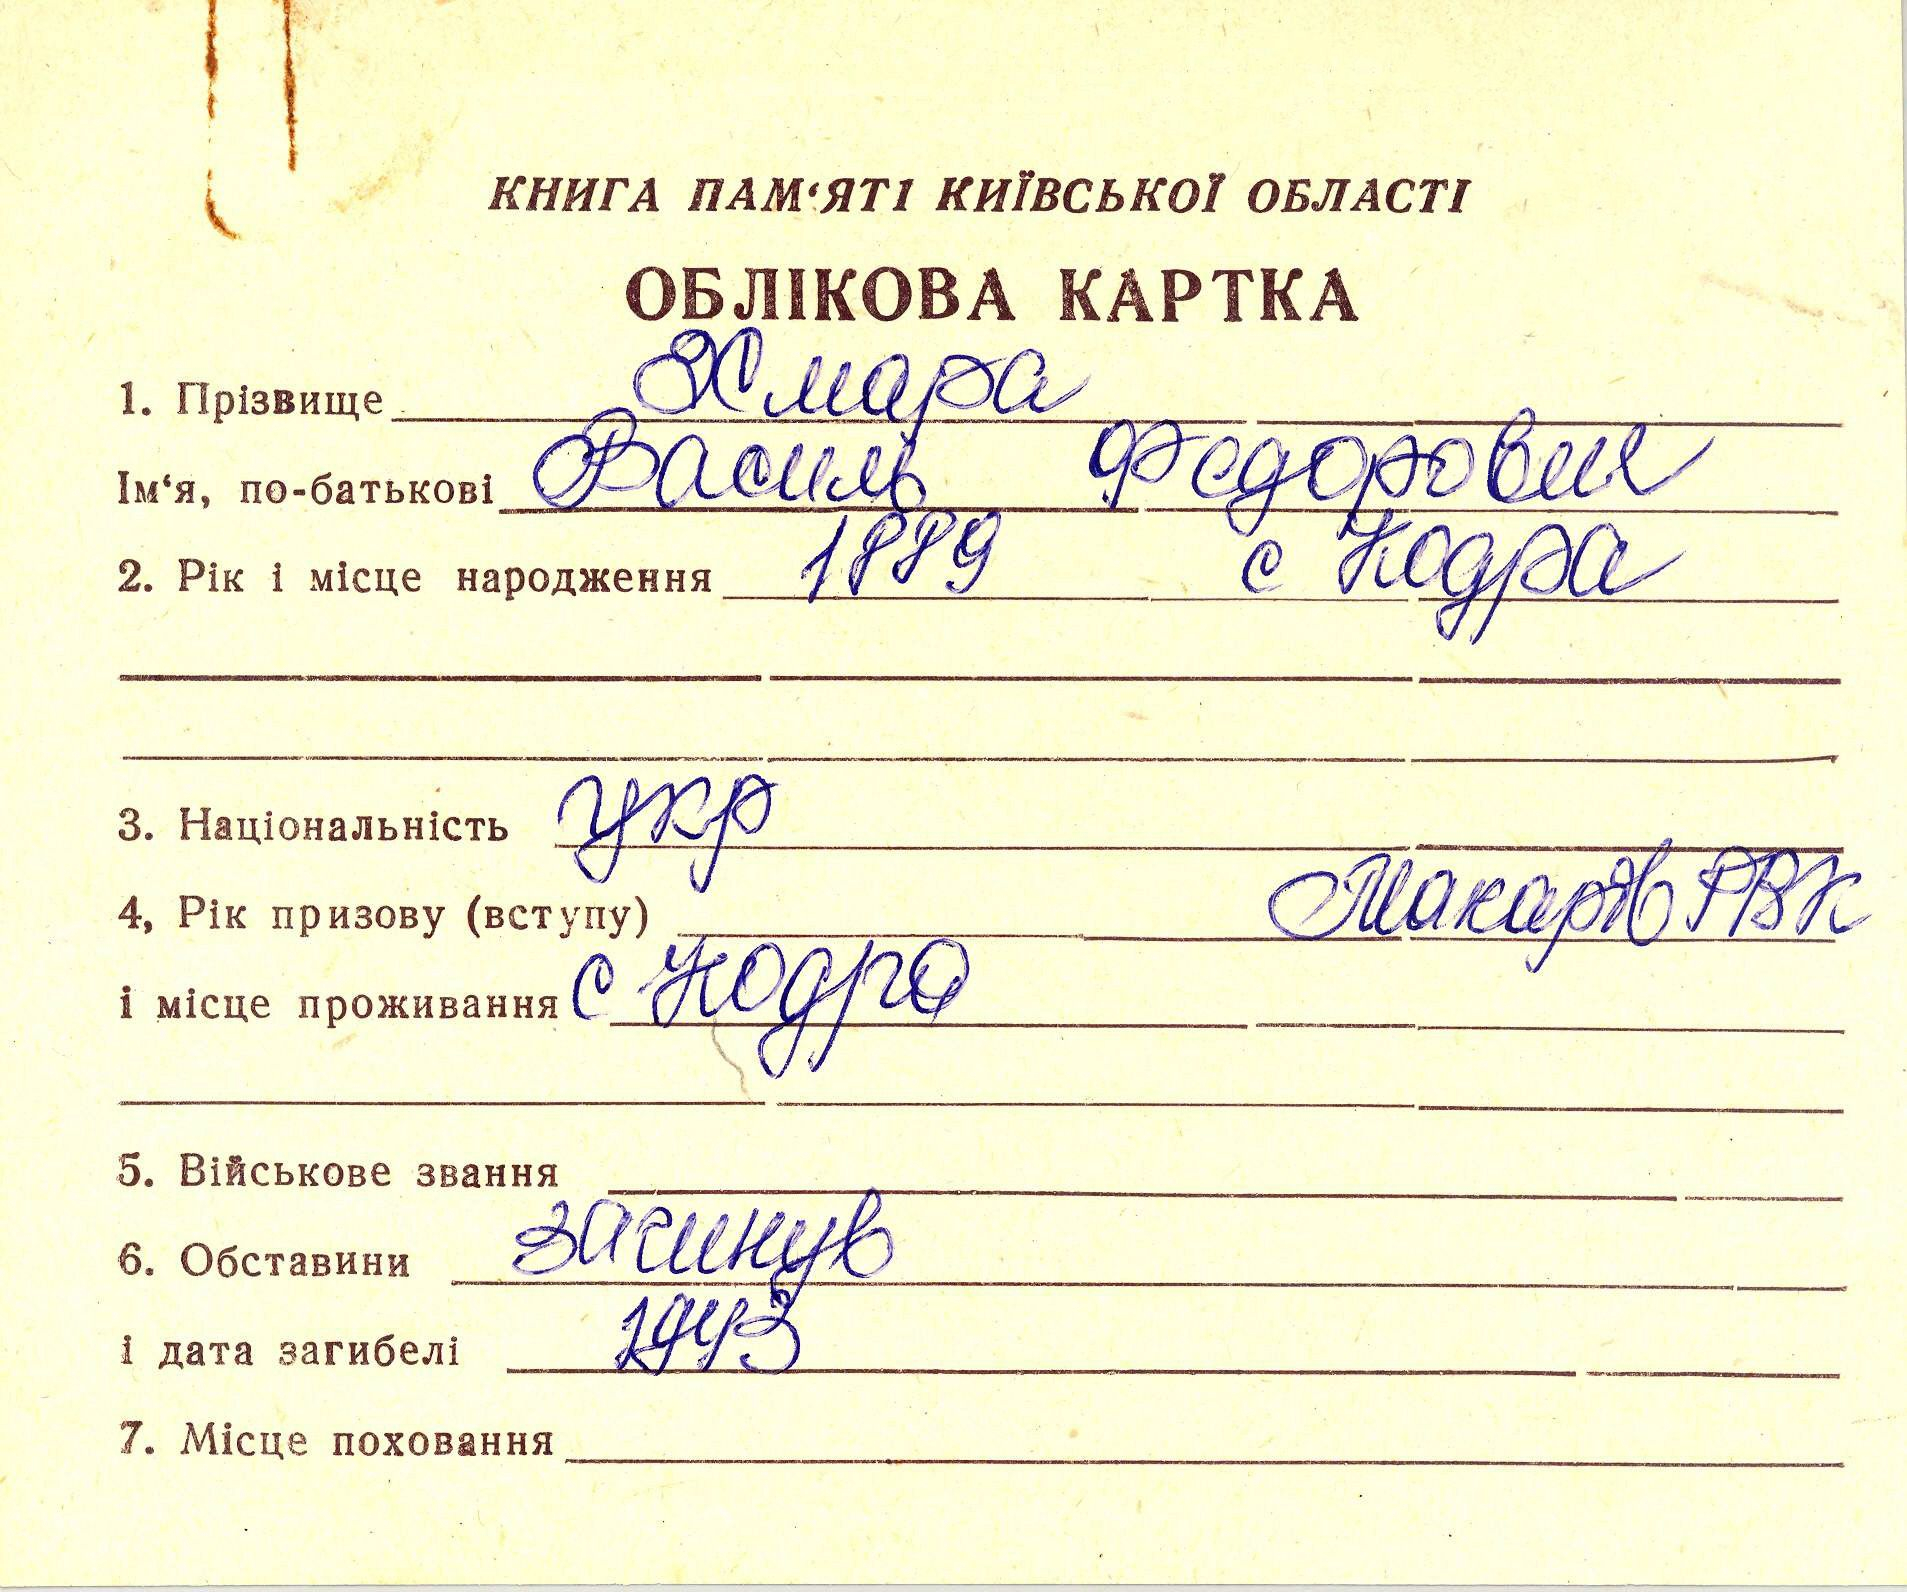 КНИГА ПАМ‘ЯТІ КИЇВСЬКОЇ ОБЛАСТІ
ОБЛІКОВА КАРТКА
1. Прізвище Хмара
Ім‘я, по-батькові Василь Федорович
2. Рік і місце народження 1889 с Кодра
3. Національність укр
4, Рік призову (вступу) Макарів РВК
і місце проживання с Кодра
5. Військове звання
6. Обставини загинув
і дата загибелі 1943
7. Місце поховання